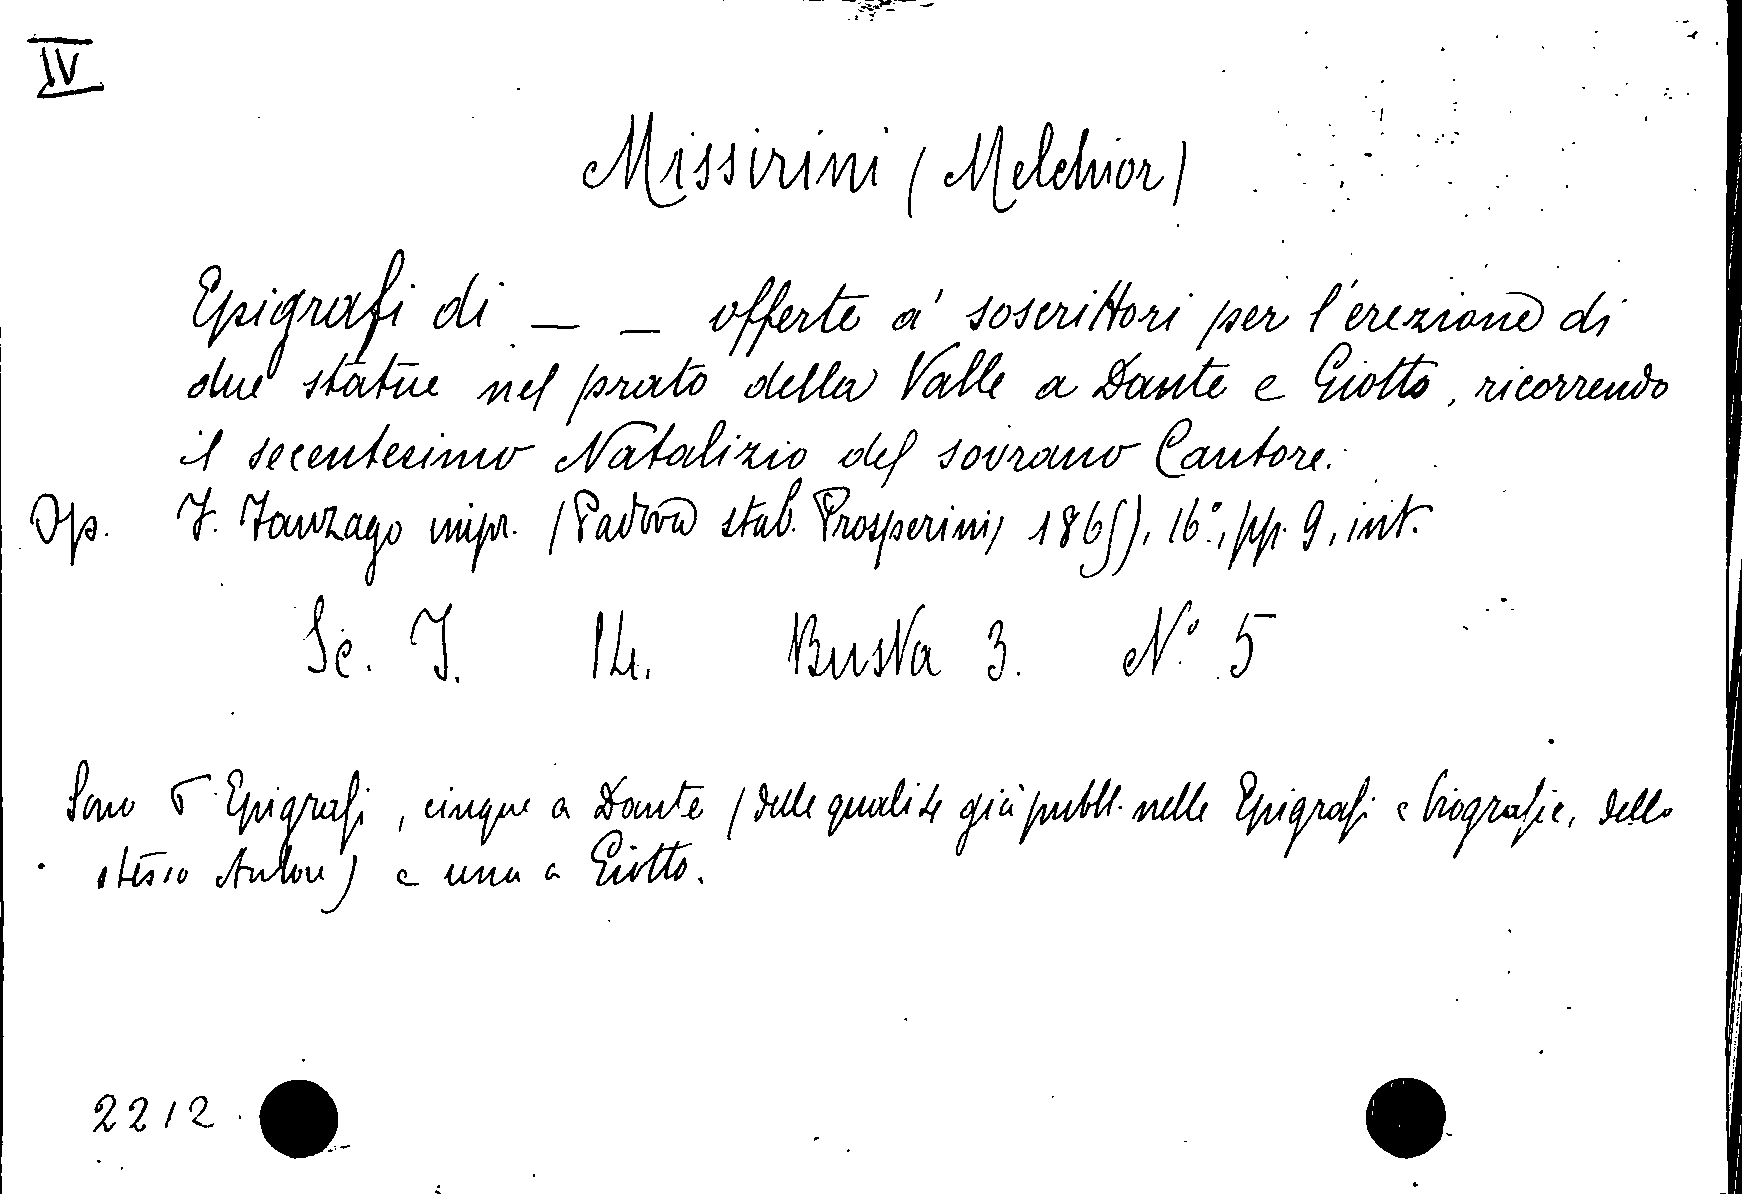 IV
Missirini (Melchior)
Epigrafi di _ _ offerte a' soscrittori per l'erezione di
due statue nel prato della Valle a Dante e Giotto, ricorrendo
il secentesimo Natalizio del sovrano Cantore.
Op. F. Fanzago impr. (Padova stab. Prosperini, 1865), 16°, pp. 9, int.
Sc. I. 14. Busta 3. N° 5
Sono 6 Epigrafi, cinque a Dante (delle quali 4 già pubbl. nelle Epigrafi e biografie, dello
stesso Autore) e una a Giotto.
2212